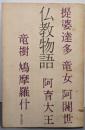 提婆達多 竜女 阿闍世
仏教物語 阿育大王
竜樹 鳩摩羅什